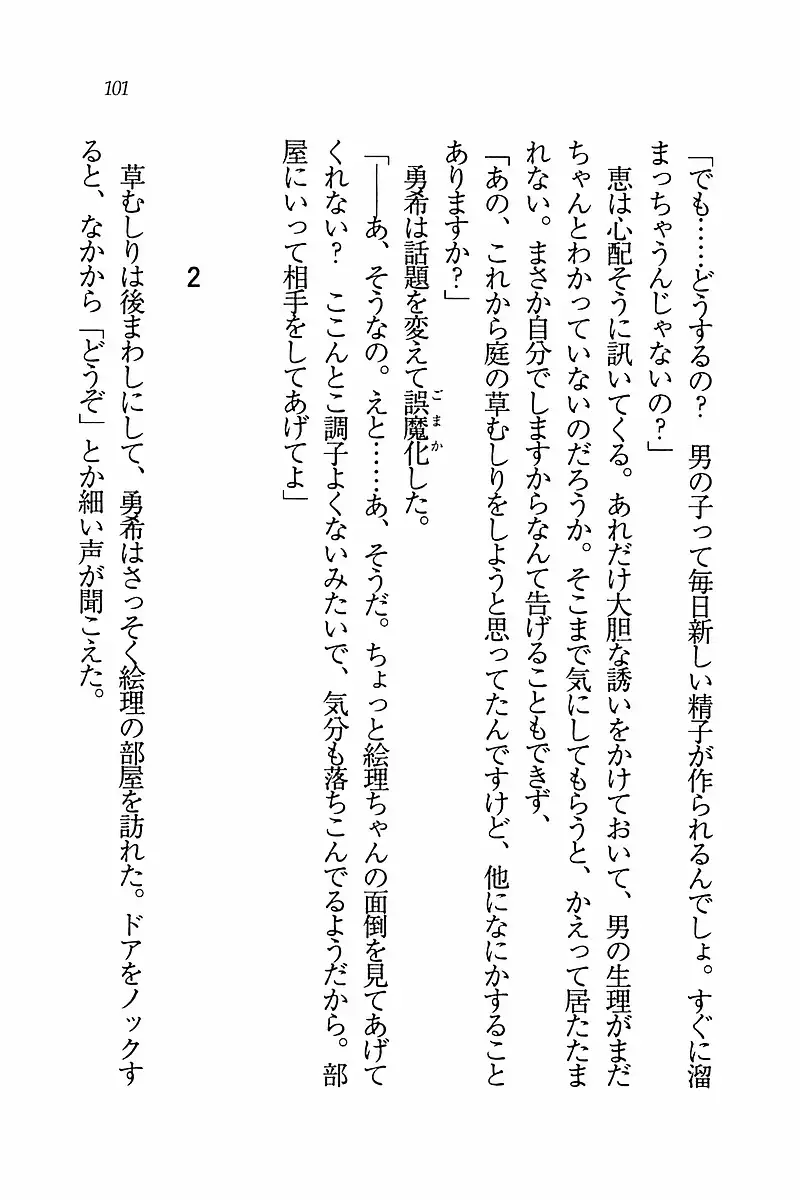 101
「でも……どうするの？　男の子って毎日新しい精子が作られるんでしょ。すぐに溜
まっちゃうんじゃないの？」
　恵は心配そうに訊いてくる。あれだけ大胆な誘いをかけておいて、男の生理がまだ
ちゃんとわかっていないのだろうか。そこまで気にしてもらうと、かえって居たたま
れない。まさか自分でしますからなんて告げることもできず、
「あの、これから庭の草むしりをしようと思ってたんですけど、他になにかすること
ありますか？」
　勇希は話題を変えて誤魔化した。
ごまか
「――あ、そうなの。えと……あ、そうだ。ちょっと絵理ちゃんの面倒を見てあげて
くれない？　ここんとこ調子よくないみたいで、気分も落ちこんでるようだから。部
屋にいって相手をしてあげてよ」
2
　草むしりは後まわしにして、勇希はさっそく絵理の部屋を訪れた。ドアをノックす
ると、なかから「どうぞ」とか細い声が聞こえた。